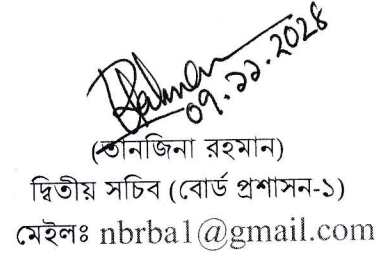 ০৭.১১.২০২৪
(তানজিনা রহমান)
দ্বিতীয় সচিব (বোর্ড প্রশাসন-১)
মেইলঃ nbrba1@gmail.com